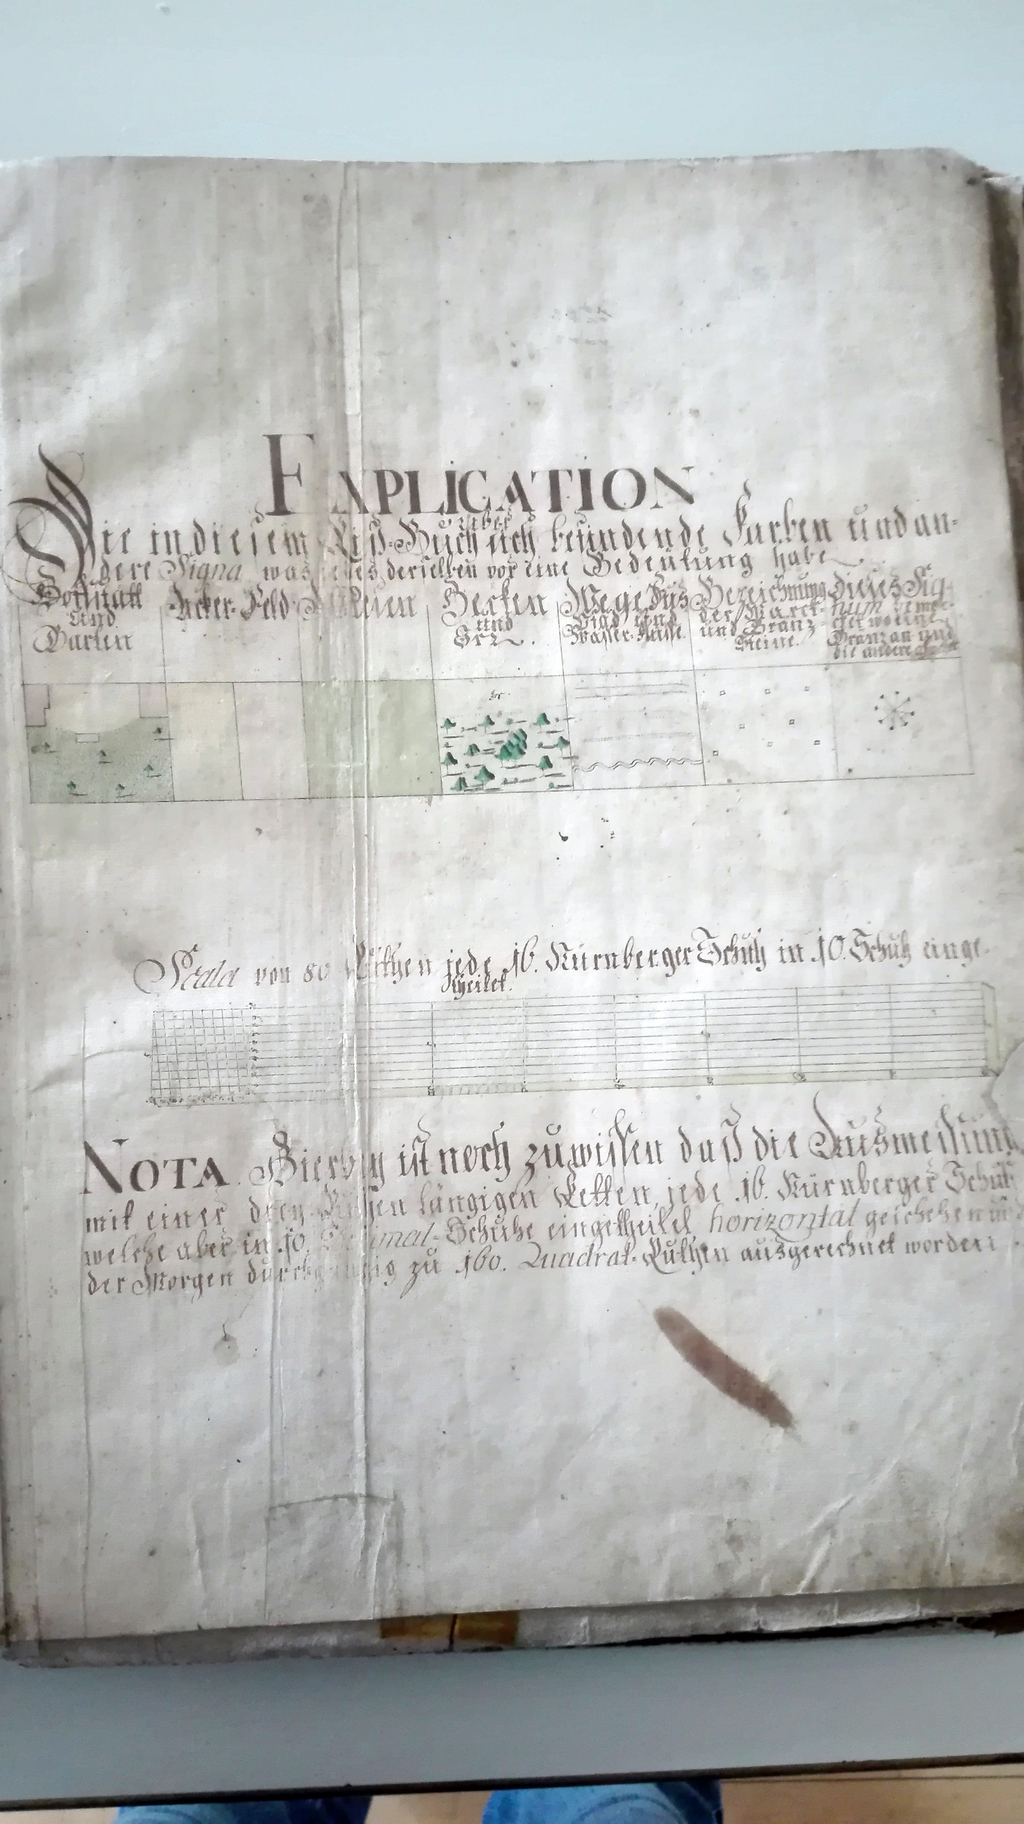 EXPLICATION
Die in diesem Riß-Buch sich befindende Farben und an-
dere Signa was jedes derselben vor eine Bedeutung habe
Hoffstatt
und
Garten
Acker-Feld
Wiesen
Hecken
und
Wege, Fus
Pfad und
Wasser-Flüsse.
Bezeichnung
der Marck-
und Gränz
Steine.
Dieses Sig-
num
Gränz an und
die andere
Scala von 80 Ruthen jede 16. Nürnberger Schuh in 10. Schuh einge-
theilet.
NOTA. Hierbey ist noch zu wissen daß die Ausmessung
mit einer drey Ruthen längigen Ketten, jede 16. Nürnberger Schuh
welche aber in 10. Decimal-Schuhe eingetheilet horizontal geschehen und
der Morgen durchgängig zu 160. Quadrat-Ruthen ausgerechnet worden.